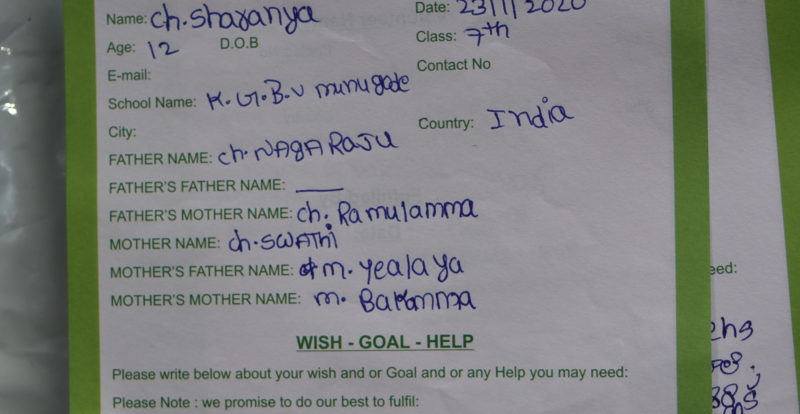 Name: ch.sharanya Date: 23/11/2020
Age: 12 D.O.B Class: 7th
E-mail: Contact No
School Name: K.G.B.V munugode
City: Country: India
FATHER NAME: ch.NAGARAJU
FATHER'S FATHER NAME:
FATHER'S MOTHER NAME: ch. Ramulamma
MOTHER NAME: ch.SWATHi
MOTHER'S FATHER NAME: m. yealaya
MOTHER'S MOTHER NAME: m.
WISH - GOAL - HELP
Please write below about your wish and or Goal and or any Help you may need:
Please Note : we promise to do our best to fulfil:
eed: